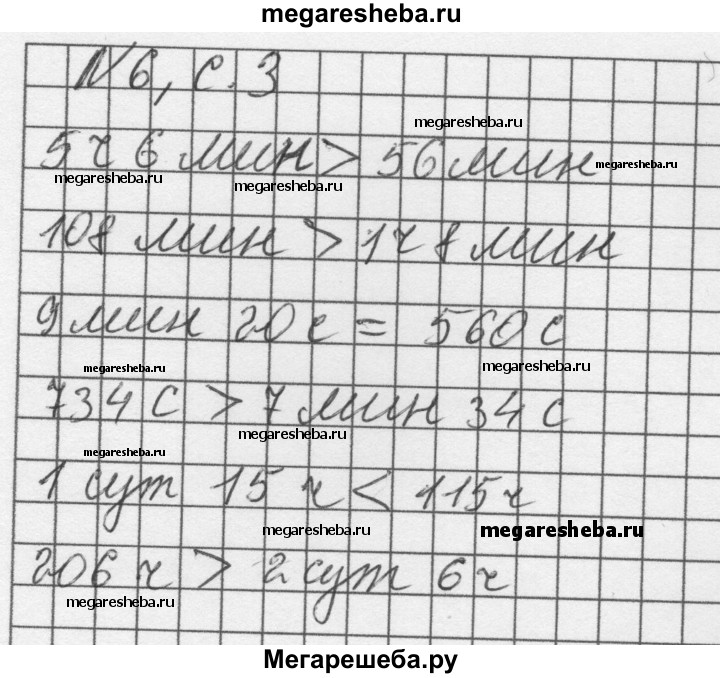 megaresheba.ru
№6, с.3
megaresheba.ru
5 ч 6 мин > 56 мин
megaresheba.ru
megaresheba.ru
megaresheba.ru
108 мин > 1 ч 8 мин
9 мин 20 с = 560 с
megaresheba.ru
megaresheba.ru
734 с > 7 мин 34 с
megaresheba.ru
megaresheba.ru
1 сут 15 ч < 115 ч
megaresheba.ru
megaresheba.ru
206 ч > 2 сут 6 ч
megaresheba.ru
Мегарешеба.ру